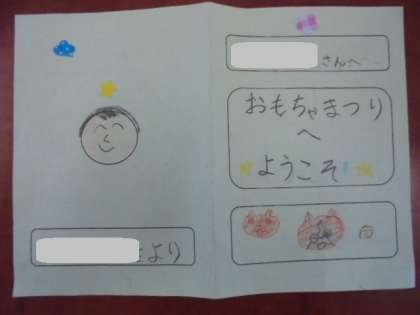 さんへ
おもちゃまつり
へ
ようこそ
より